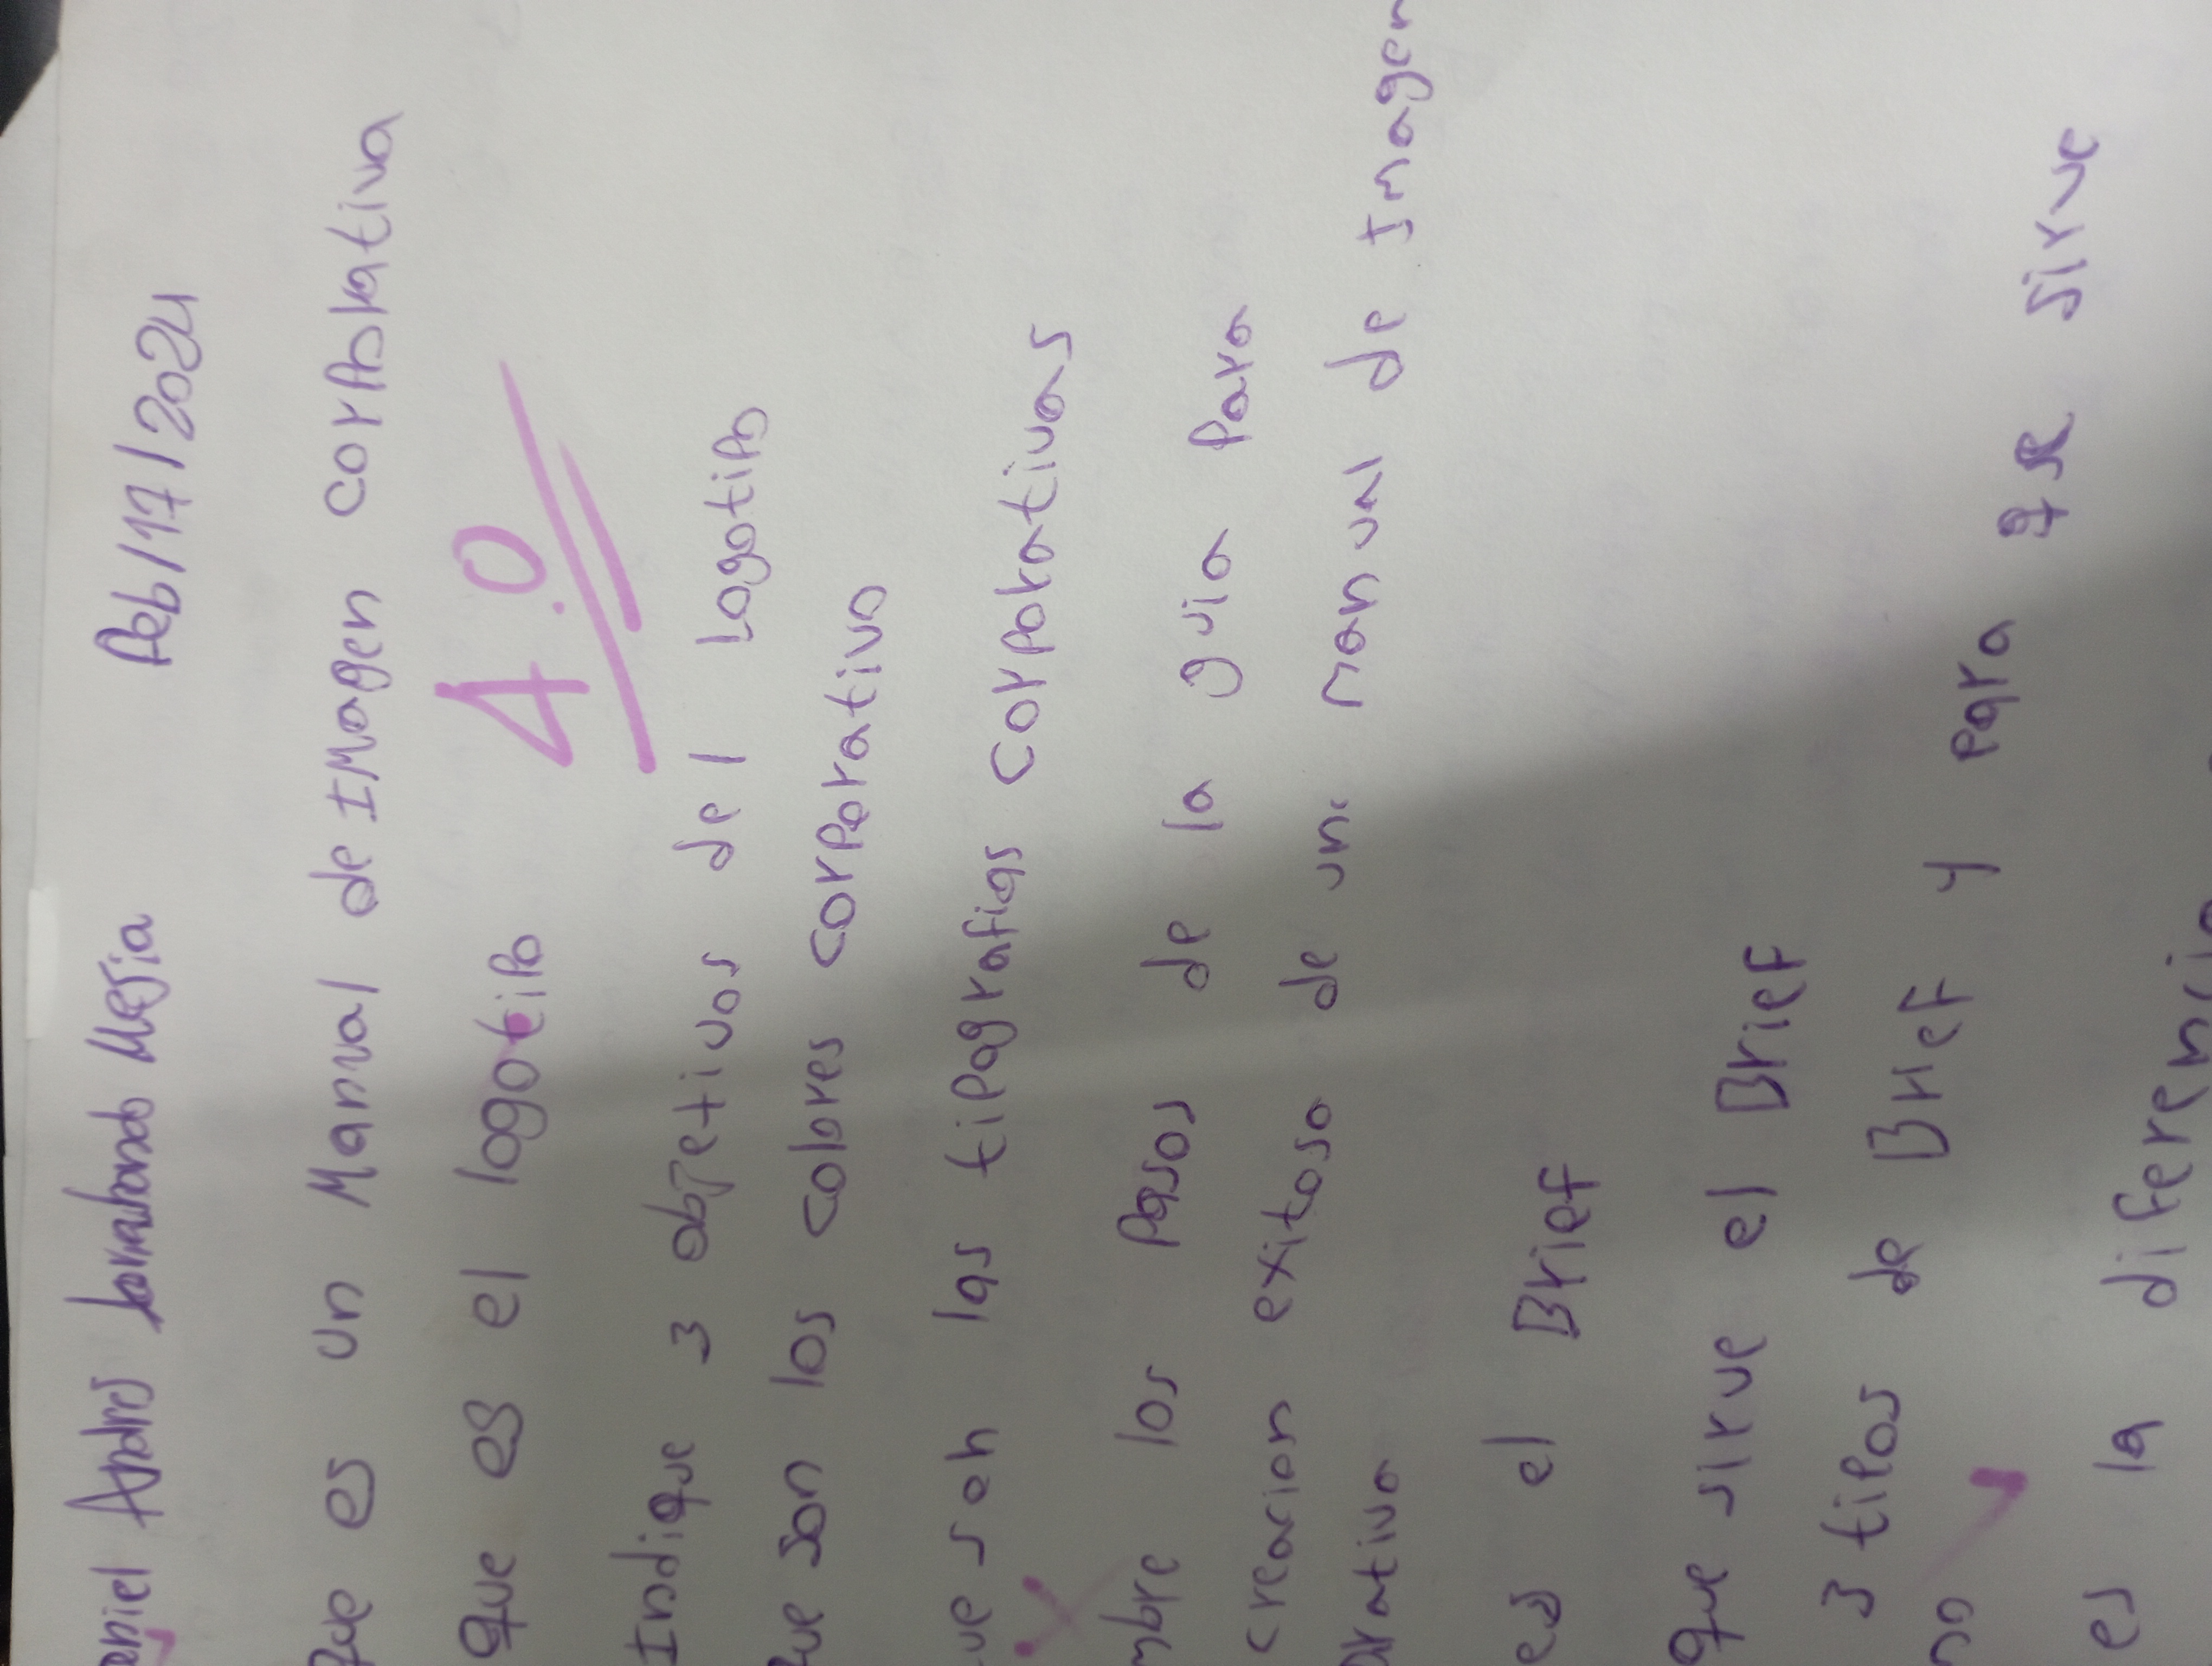 eniel Andres Mejia Feb/17/2024
que es un Manual de IMagen corporativa
que es el logotipo
4.0
Indique 3 objetivos del Logotipo
ue son los colores corporativo
ue son las tipografias corporativas
mbre los Pasos de la guia Para
creacion exitosa de un manual de Imagen
orativa
es el Brief
que sirve el Brief
3 tipos de Brief y para que sirve
no
es la diferencia